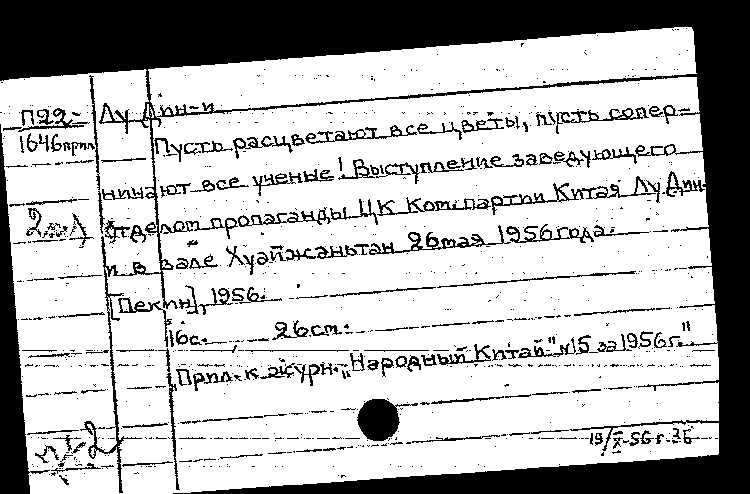 П22-
1646прил
Лу Дин-и
Пусть расцветают все цветы, пусть сопер-
ничают все ученые! Выступление заведующего
отделом пропаганды ЦК Ком. партии Китая Лу Дин-
и в зале Хуайжэньтан 26 мая 1956 года.
[Пекин], 1956.
16с. 26см.
"Прил. к журн. "Народный Китай" №15 за 1956г."
19/X-56г. ЗБ